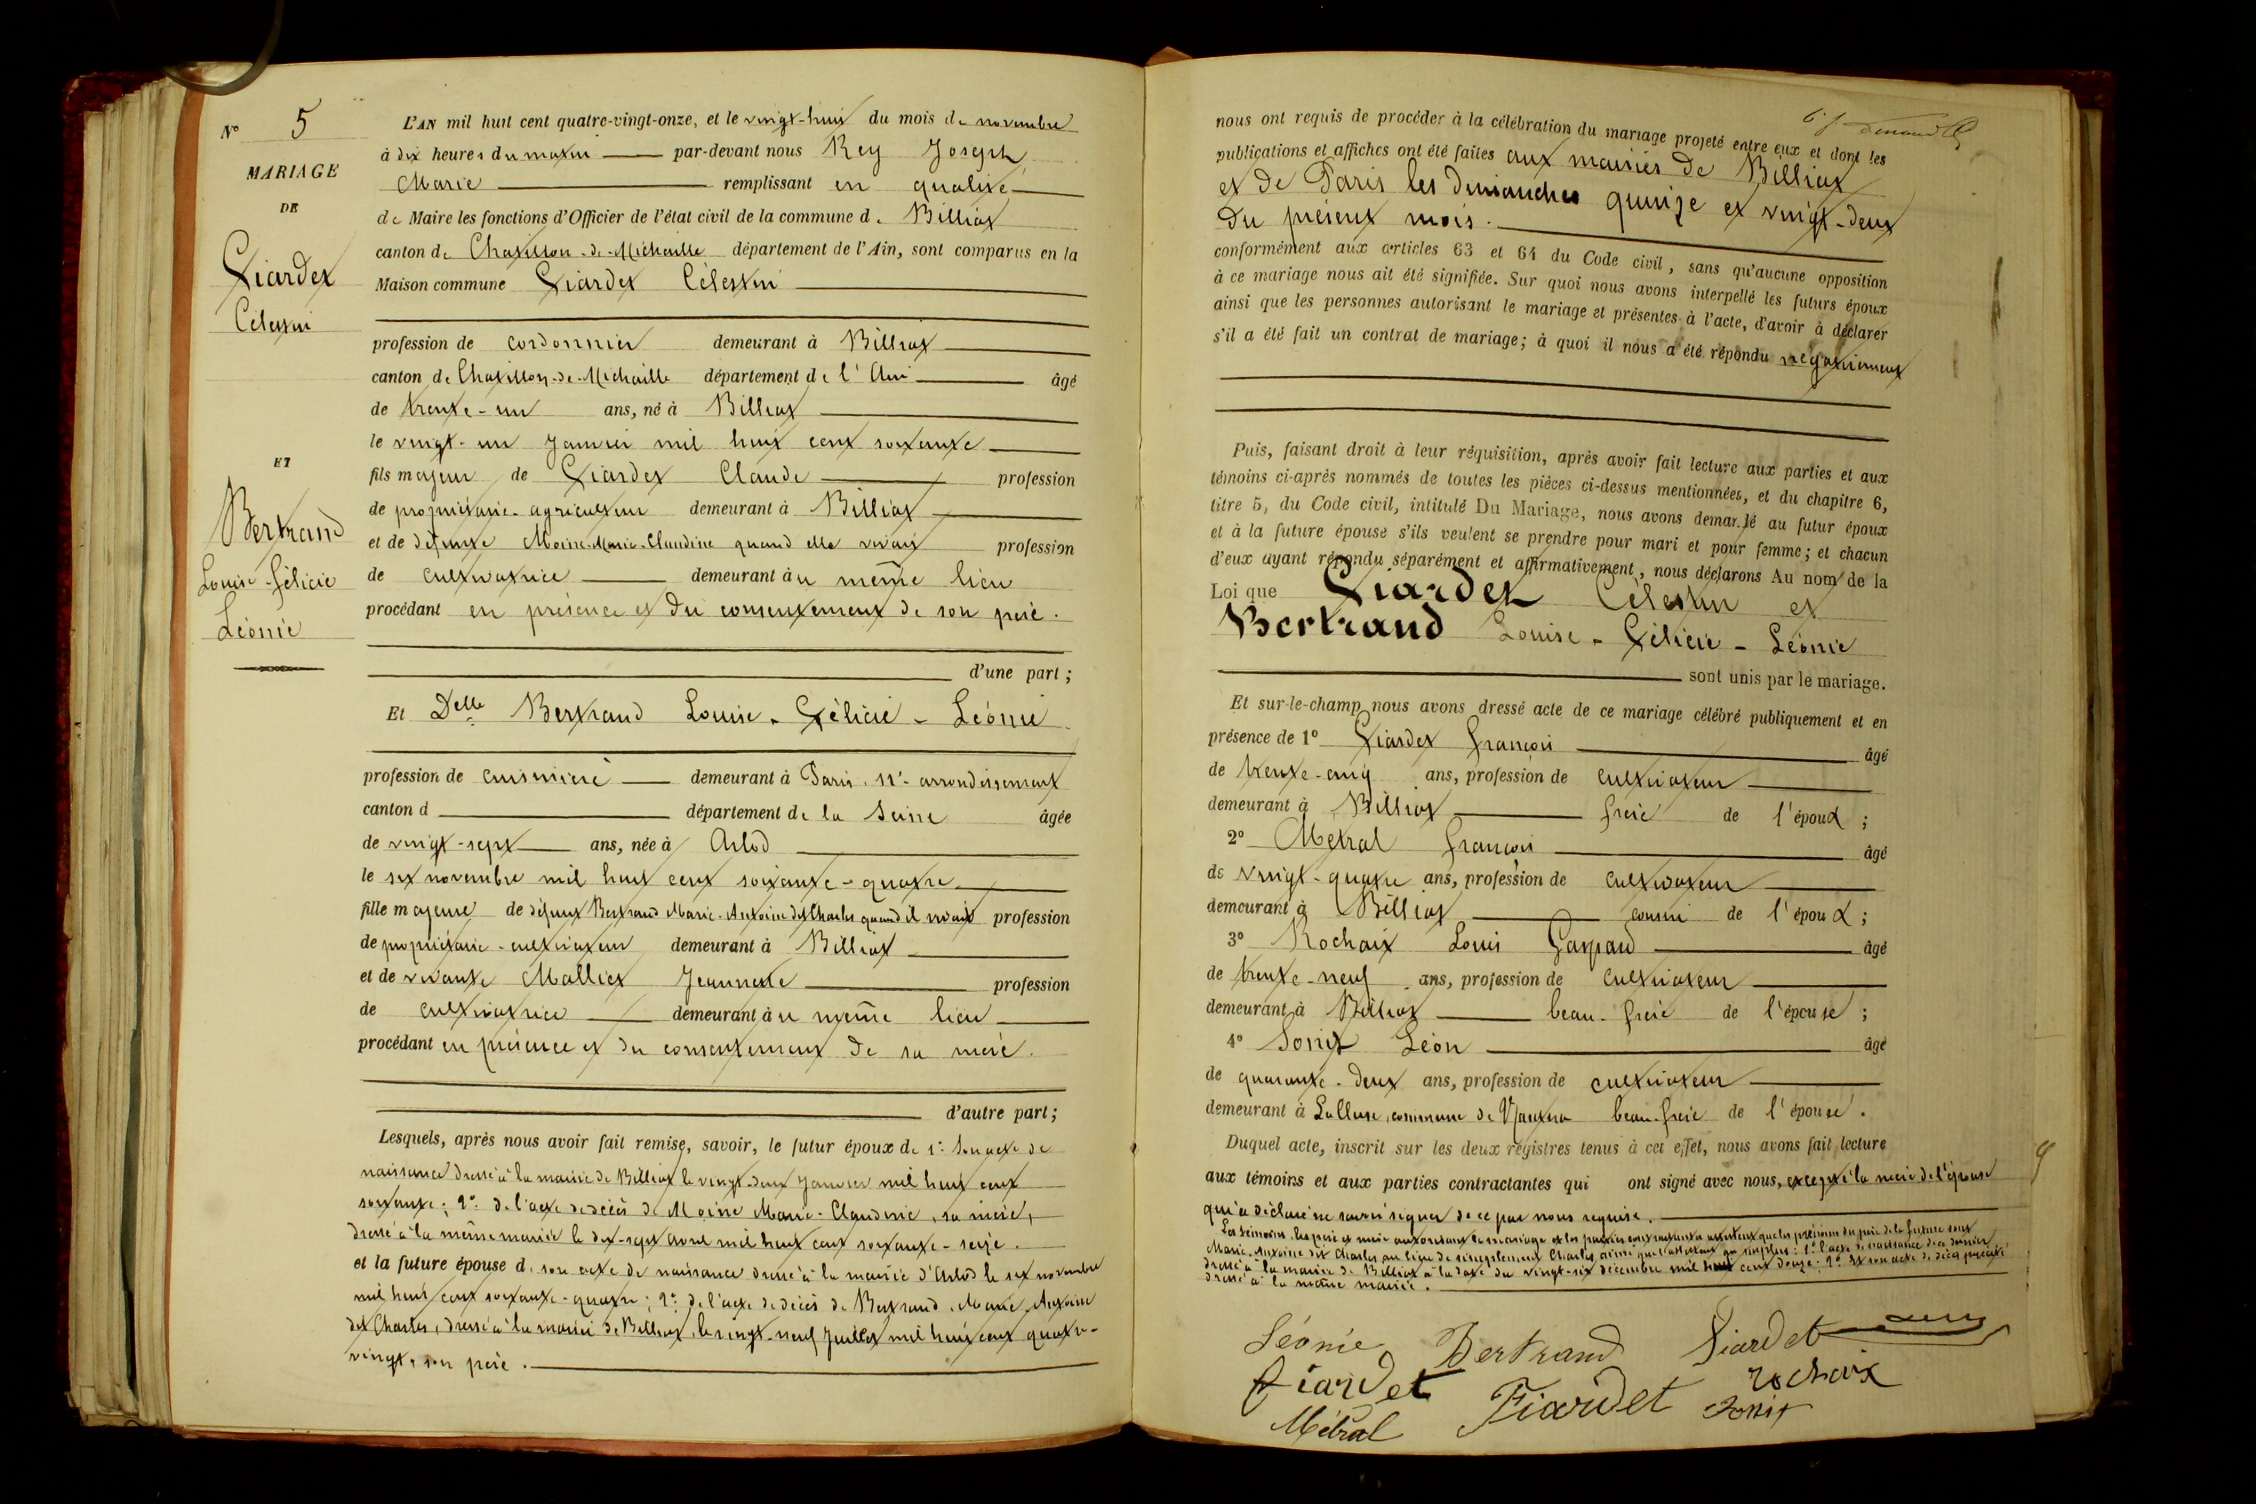 N° 5
MARIAGE
DE
Fiardet
Célestin
ET
Bertrand
Louise-Félicie
Léonie
L'AN mil huit cent quatre-vingt-onze, et le vingt-huit du mois de novembre
à dix heures du matin par-devant nous Rey Joseph
Marie remplissant en qualité
de Maire les fonctions d'Officier de l'état civil de la commune de Billiat
canton de Chatillon-de-Michaille département de l'Ain, sont comparus en la
Maison commune Fiardet Célestin
profession de cordonnier demeurant à Billiat
canton de Chatillon-de-Michaille département de l'Ain âgé
de trente-un ans, né à Billiat
le vingt-un Janvier mil huit cent soixante
fils majeur de Fiardet Claude profession
de propriétaire-agriculteur demeurant à Billiat
et de défunte Moine Marie-Claudine quand elle vivait profession
de cultivatrice demeurant àu même lieu
procédant en présence et du consentement de son père.
d'une part;
Et Delle Bertrand Louise-Félicie-Léonie
profession de cuisinière demeurant à Paris, 11e arrondissement
canton d département de la Seine âgée
de vingt-sept ans, née à Arlod
le six novembre mil huit cent soixante-quatre
fille majeure de défunt Bertrand Marie-Antoine dit Charles quand il vivait profession
de propriétaire-cultivateur demeurant à Billiat
et de vivante Malliet Jeannette profession
de cultivatrice demeurant àu même lieu
procédant en présence et du consentement de sa mère.
d'autre part;
Lesquels, après nous avoir fait remise, savoir, le futur époux de 1° Son acte de
naissance dressé à la mairie de Billiat le vingt-deux Janvier mil huit cent
soixante; 2° de l'acte de décès de Moine Marie-Claudine, sa mère,
dressé à la même mairie le dix-sept Avril mil huit cent soixante-seize.
et la future épouse d. son acte de naissance dressé à la mairie d'Arlod le six novembre
mil huit cent soixante-quatre; 2° de l'acte de décès de Bertrand Marie-Antoine
dit Charles, dressé à la mairie de Billiat, le vingt-neuf Juillet mil huit cent quatre-
vingt, son père.
nous ont requis de procéder à la célébration du mariage projeté entre eux et dont les
publications et affiches ont été faites aux mairies de Billiat
et de Paris les dimanches quinze et vingt-deux
du présent mois.
conformément aux articles 63 et 64 du Code civil, sans qu'aucune opposition
à ce mariage nous ait été signifiée. Sur quoi nous avons interpellé les futurs époux
ainsi que les personnes autorisant le mariage et présentes à l'acte, d'avoir à déclarer
s'il a été fait un contrat de mariage; à quoi il nous a été répondu négativement
Puis, faisant droit à leur réquisition, après avoir fait lecture aux parties et aux
témoins ci-après nommés de toutes les pièces ci-dessus mentionnées, et du chapitre 6,
titre 5, du Code civil, intitulé Du Mariage, nous avons demandé au futur époux
et à la future épouse s'ils veulent se prendre pour mari et pour femme; et chacun
d'eux ayant répondu séparément et affirmativement, nous déclarons Au nom de la
Loi que Fiardet Célestin et
Bertrand Louise-Félicie-Léonie
sont unis par le mariage.
Et sur-le-champ nous avons dressé acte de ce mariage célébré publiquement et en
présence de 1° Fiardet François âgé
de trente-cinq ans, profession de cultivateur
demeurant à Billiat frère de l'époux;
2° Métral François âgé
de vingt-quatre ans, profession de cultivateur
demeurant à Billiat cousin de l'époux;
3° Rochaix Louis Gaspard âgé
de trente-neuf ans, profession de cultivateur
demeurant à Billiat beau-frère de l'épouse;
4° Sonit Léon âgé
de quarante-deux ans, profession de cultivateur
demeurant à commune de beau-frère de l'épouse.
Duquel acte, inscrit sur les deux registres tenus à cet effet, nous avons fait lecture
aux témoins et aux parties contractantes qui ont signé avec nous, excepté la mère de l'épouse
qui a déclaré ne savoir signer de ce par nous requise.
Les témoins, les père et mère autorisant le mariage et les parties contractantes attestent que les prénoms du père de la future sont
Marie-Antoine dit Charles au lieu de simplement Charles ainsi que 1° l'acte de naissance de ce dernier
dressé à la mairie de Billiat à la date du vingt-six décembre mil huit cent douze. 2° Et son acte de décès précité
dressé à la même mairie.
Léonie Bertrand Fiardet
Fiardet Fiardet rochaix
Métral Sonit